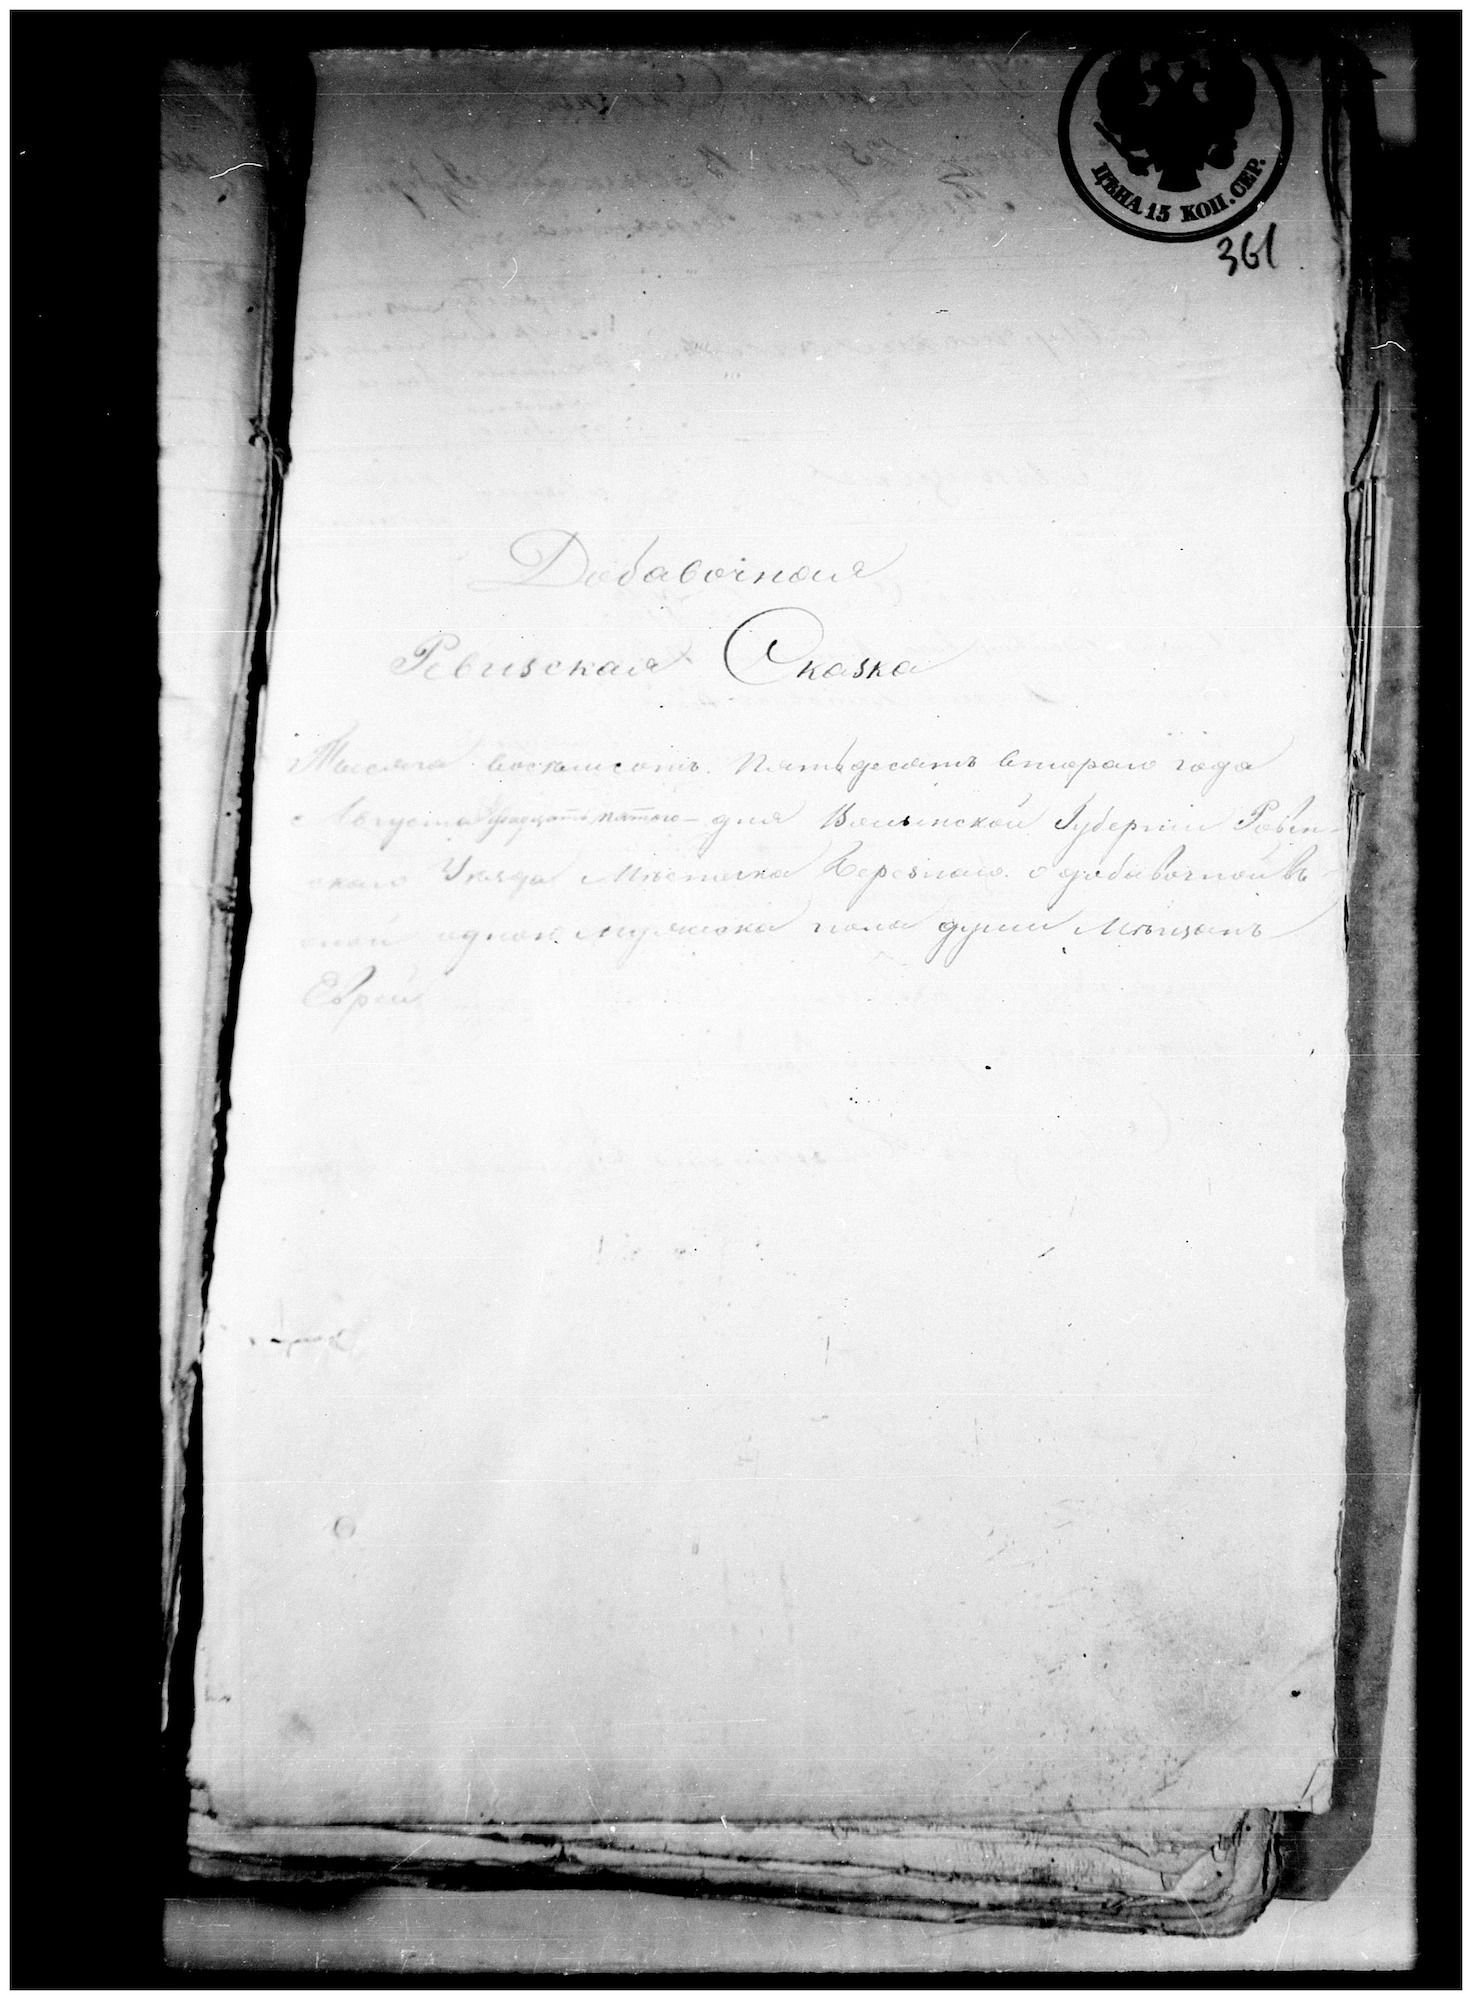 ЦѢНА 15 КОП. СЕР.
361
Добавочная
Ревизская Сказка
Тысяча восемьсотъ пятьдесятъ втораго года
Августа двадцать пятого дня Волынской Губернии Ровен-
скаго Уезда Местечка Березного о добавочной
одной мужеска пола души Мещанъ
Еврей